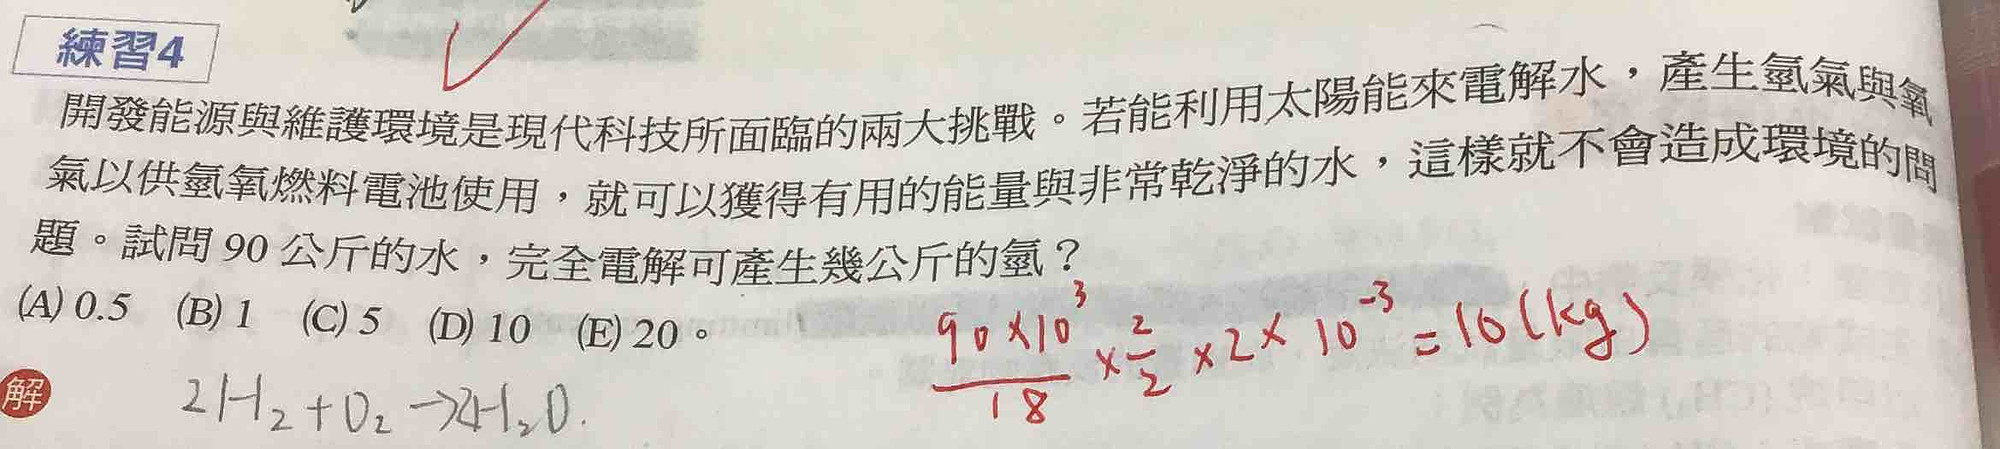 練習4
開發能源與維護環境是現代科技所面臨的兩大挑戰。若能利用太陽能來電解水,產生氫氣與氧
氣以供氫氧燃料電池使用,就可以獲得有用的能量與非常乾淨的水,這樣就不會造成環境的問
題。試問 90 公斤的水,完全電解可產生幾公斤的氫?
(A) 0.5 (B) 1 (C) 5 (D) 10 (E) 20。
90×10³/18 × 2/2 × 2 × 10⁻³ = 10 (kg)
解
2H₂+O₂→2H₂O.